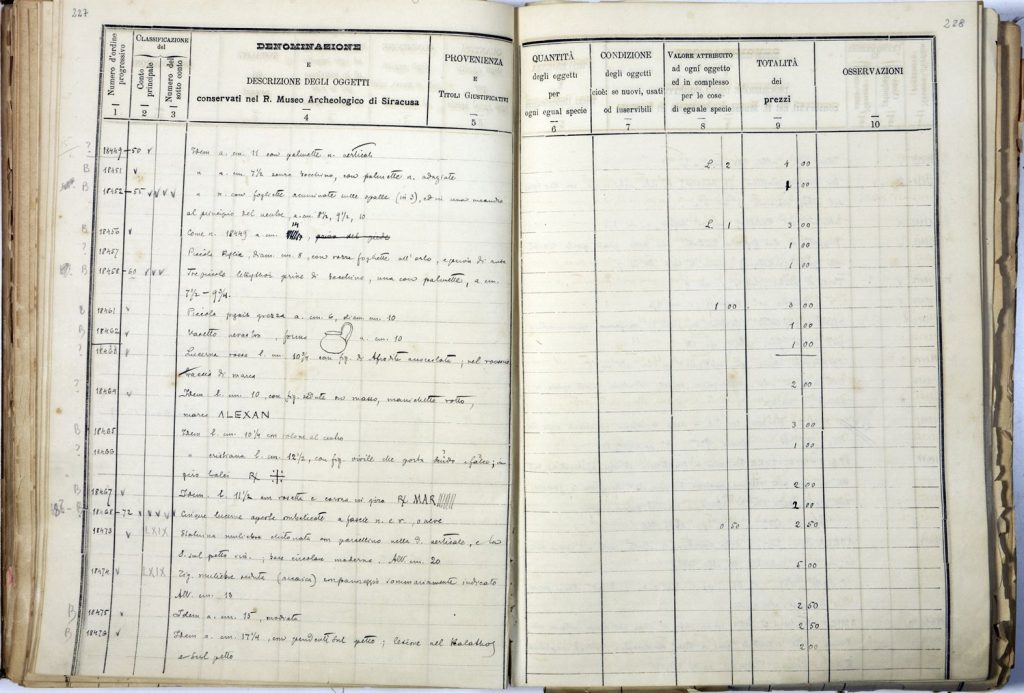 227
228
Numero d'ordine progressivo
1
CLASSIFICAZIONE
del
Conto principale
2
Numero del sotto conto
3
DENOMINAZIONE
E
DESCRIZIONE DEGLI OGGETTI
conservati nel R. Museo Archeologico di Siracusa
4
PROVENIENZA
E
TITOLI GIUSTIFICATIVI
5
QUANTITÀ
degli oggetti
per
ogni egual specie
6
CONDIZIONE
degli oggetti
cioè: se nuovi, usati
od inservibili
7
VALORE ATTRIBUITO
ad ogni oggetto
ed in complesso
per le cose
di eguale specie
8
TOTALITÀ
dei
prezzi
9
OSSERVAZIONI
10
? 18449-50 v Idem a. cm. 11 con palmette n. verticali L. 2 4 00
B 18451 v " a. cm. 7 1/2 senza zocchino, con palmette n. adagiate 1 00
B 18452-55 v v v v " n. con fogliette acuminate sulle spalle (in 3), ed in una meandro
al principio del ventre, a. cm 8 1/2, 9 1/2, 10 L. 1 3 00
B 18456 v Come n. 18449 a. cm. 14 1 00
? 18457 Piccola diam. cm. 8, con rozze fogliette all'orlo, e priva di anse 1 00
B 18458-60 v v v Tre piccole lekythoi prive di zocchino, una con palmette, a. cm.
7 1/2 - 9 3/4. 1 00 3 00
B 18461 v Piccola pyxis grezza a. cm. 6, diam. cm. 10 1 00
B 18462 v Vasetto nerastro, forma a. cm. 10 1 00
18463 Lucerna rossa l. cm. 10 3/4 con fig. di Afrodite accoccolata; nel rovescio
traccia di marca 2 00
? 18464 v Idem l. cm. 10, con fig. seduta su masso, manichetto rotto,
marca ALEXAN 3 00
B 18465 Idem l. cm. 10 1/4 con al centro 1 00
? 18466 " cristiana l. cm. 12 1/2, con fig. virile che porta scudo e; in
giro 2 00
B 18467 v Idem. l. 11 1/2 con rosette e corona in giro MAR 2 00
B 18468-72 v v v v v Cinque lucerne agresti ombelicate a fascie n. e r., o nere 0 50 2 50
18473 v LXIX Statuina muliebre con porcellino nella d. verticale, e la
s. sul petto; base circolare moderna. Alt. cm. 20 5 00
18474 v LXIX Fig. muliebre seduta (arcaica) sommariamente indicato
Alt. cm. 13 2 50
B 18475 v Idem a. cm. 15, 2 50
B 18476 v Idem a. cm. 17 1/4, con pendenti sul petto; lesione nel Kalathos
e sul petto 2 00